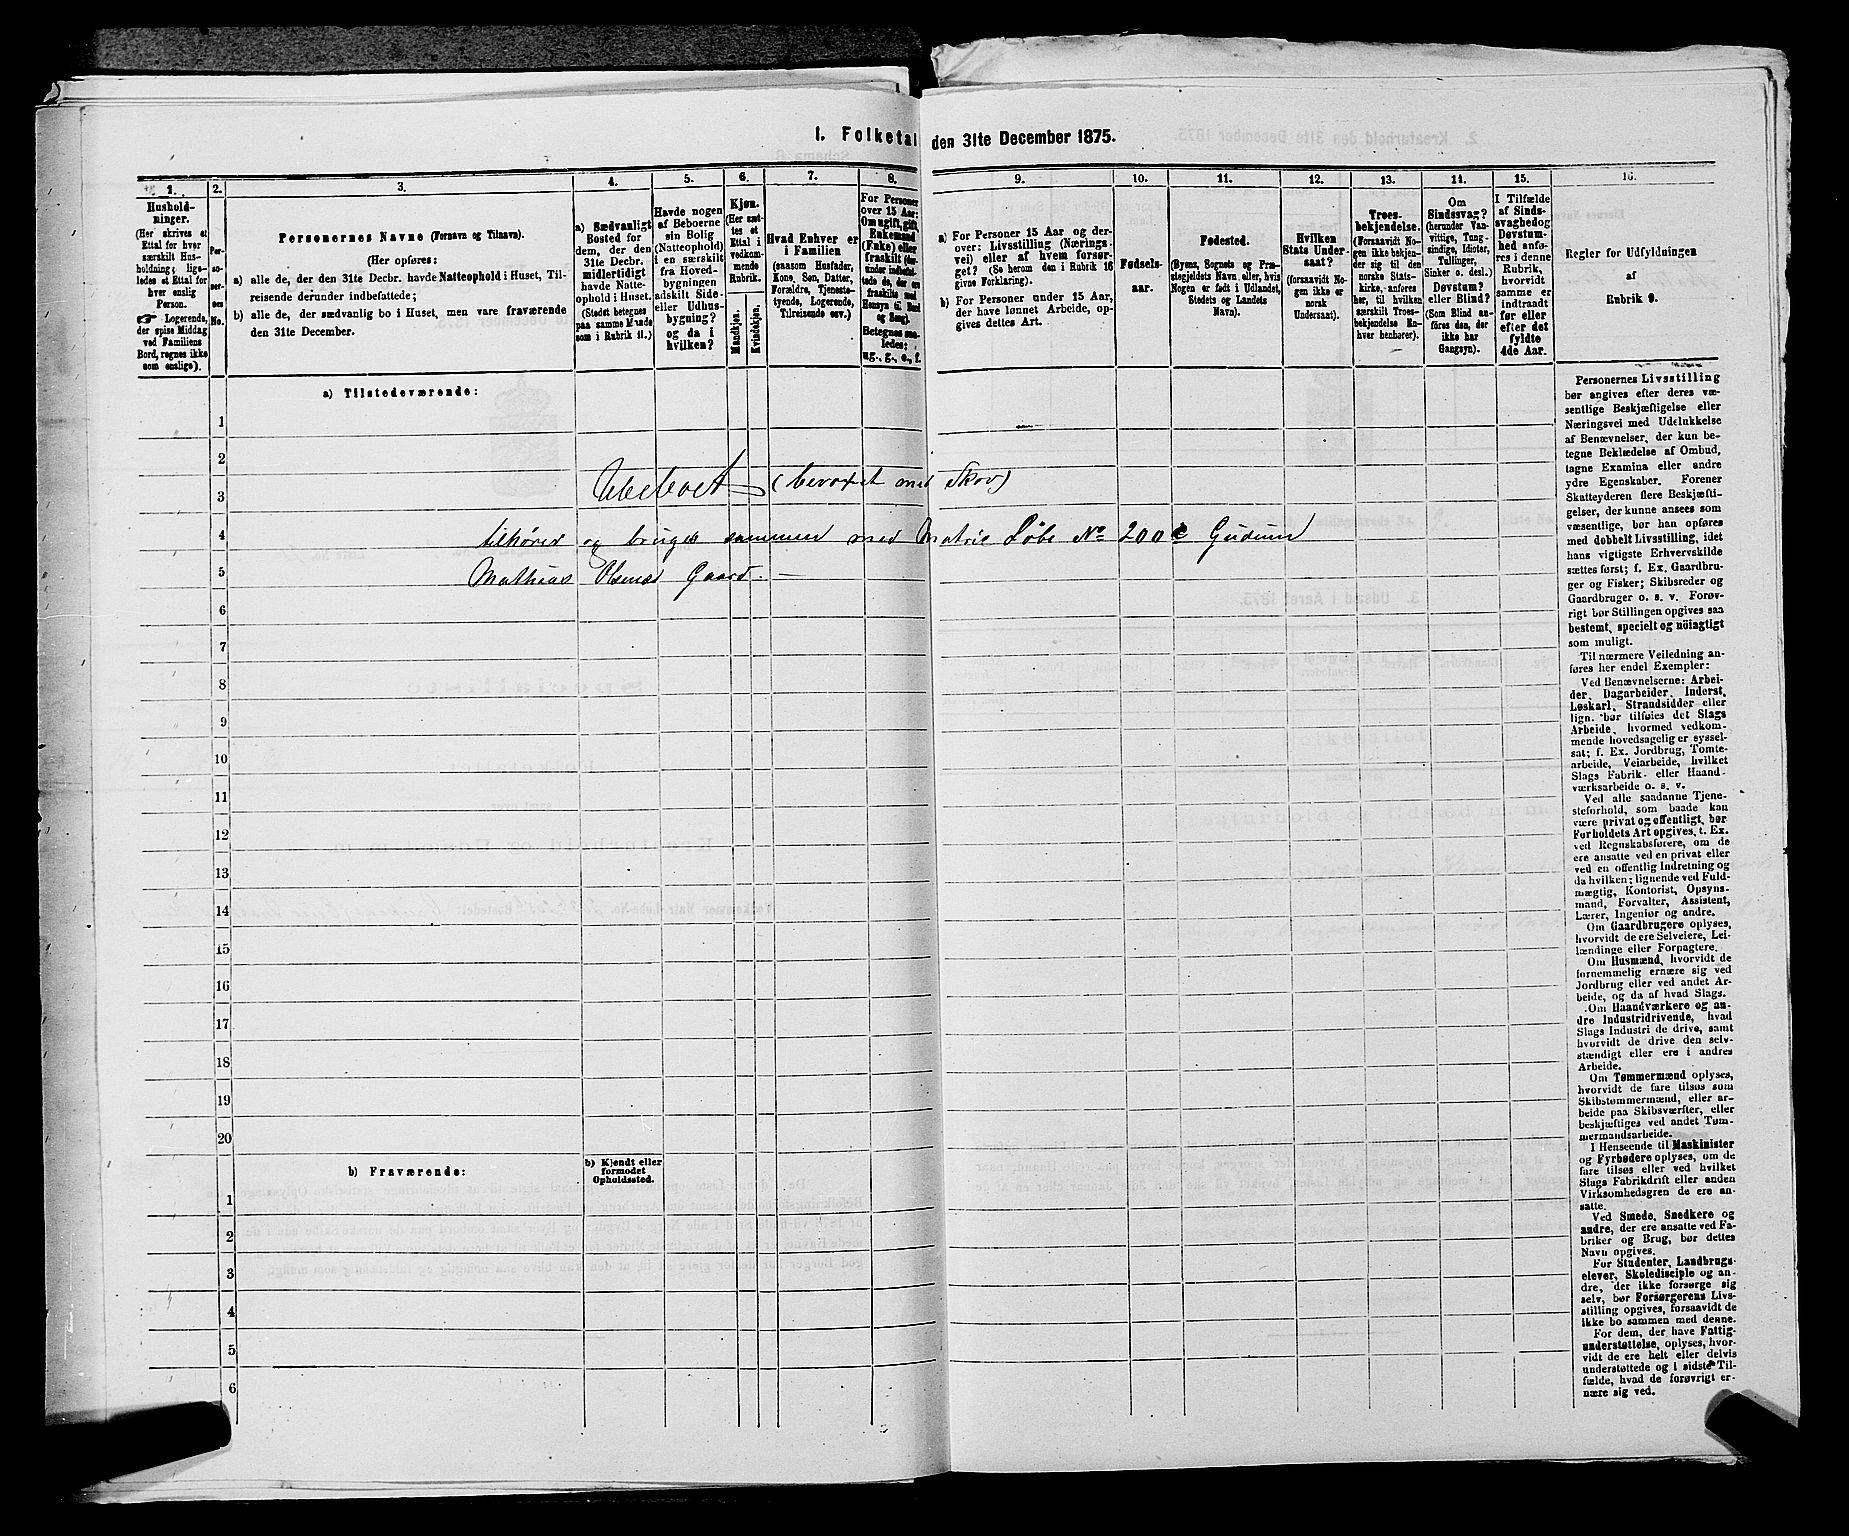 1. Folketal den 31te December 1875.
1.
Hushold-
ninger.
(Her skrives et
Ettal for hver
særskilt Hus-
holdning; lige-
ledes et Ettal for
hver enslig
Person.
☞ Logerende,
der spise Middag
ved Familiens
Bord, regnes ikke
som enslige).
2.
Per-
so-
ner-
nes
No.
3.
Personernes Navne (Fornavn og Tilnavn).
(Her opføres:
a) alle de, der den 31te Decbr. havde Natteophold i Huset, Til-
reisende derunder indbefattede;
b) alle de, der sædvanlig bo i Huset, men vare fraværende
den 31te December.
4.
a) Sædvanligt
Bosted for
dem, der den
31te Decbr.
midlertidigt
havde Natte-
ophold i Huset.
(Stedet betegnes
paa samme Maade
som i Rubrik 11.)
5.
Havde nogen
af Beboerne
sin Bolig
(Natteophold)
i en særskilt
fra Hoved-
bygningen
adskilt Side-
eller Udhus-
bygning?
og da i
hvilken?
6.
Kjøn.
(Her sæt-
tes et
Ettal i
vedkom-
mende
Rubrik.
Mandkjøn.
Kvindekjøn.
7.
Hvad Enhver er
i Familien
(saasom Husfader,
Kone, Søn, Datter,
Forældre, Tjeneste-
tyende, Logerende,
Tilreisende osv.)
8.
For Personer
over 15 Aar:
Om ugift, gift,
Enkemand
(Enke) eller
fraskilt
Betegnes saa-
ledes:
ug., g., e., f.
9.
a) For Personer 15 Aar og der-
over: Livsstilling (Nærings-
vei) eller af hvem forsør-
get? (Se herom den i Rubrik 16
givne Forklaring).
b) For Personer under 15 Aar,
der have lønnet Arbeide, op-
gives dettes Art.
10.
Fødsels-
aar.
11.
Fødested.
(Byens, Sognets og Præ-
stegjeldets Navn eller, hvis
Nogen er født i Udlandet,
Stedets og Landets
Navn).
12.
Hvilken
Stats Under-
saat?
(forsaavidt No-
gen ikke er
norsk
Undersaat).
13.
Troes-
bekjendelse.
(Forsaavidt No-
gen ikke bekjen-
der sig til den
norske Stats-
kirke, anføres
her, til hvilken
særskilt Troes-
bekjendelse En-
hver henhører).
14.
Om
Sindssvag?
(herunder Van-
vittige, Tung-
sindige, Idioter,
Tullinger,
Sinker o. desl.)
Døvstum?
eller Blind?
(Som Blind an-
føres den, der
ikke har
Gangsyn).
15.
I Tilfælde
af Sinds-
svaghed og
Døvstum-
hed anfø-
res i denne
Rubrik,
hvorvidt
samme er
indtraadt
før eller
efter det
fyldte
4de Aar.
16.
Regler for Udfyldningen
af
Rubrik 9.
a) Tilstedeværende:
1
2
3
Ubeboet (bevoxet med Skov)
4
tilhører og bruges sammen med Matric Løbe No 200 Gudum
5
Mathias Gaard.
6
7
8
9
10
11
12
13
14
15
16
17
18
19
20
b) Fraværende:
b) Kjendt eller
formodet
Opholdssted.
1
2
3
4
5
6
Personernes Livsstilling
bør angives efter deres væ-
sentlige Beskjæftigelse eller
Næringsvei med Udelukkelse
af Benævnelser, der kun be-
tegne Beklædelse af Ombud,
tagne Examina eller andre
ydre Egenskaber. Forener
Skatteyderen flere Beskjæfti-
gelser, der kunne ansees som
væsentlige, bør han opføres
med dobbelt Livsstilling, idet
hans vigtigste Erhvervskilde
sættes først; f. Ex. Gaardbru-
ger og Fisker; Skibsreder og
Gaardbruger o. s. v. Forøv-
rigt bør Stillingen opgives saa
bestemt, specielt og nøiagtigt
som muligt.
Til nærmere Veiledning an-
føres her endel Exempler:
Ved Benævnelserne: Arbei-
der, Dagarbeider, Inderst,
Løskarl, Strandsidder eller
lign. bør tilføies det Slags
Arbeide, hvormed vedkom-
mende hovedsagelig er syssel-
sat; f. Ex. Jordbrug, Tomte-
arbeide, Veiarbeide, hvilket
Slags Fabrik- eller Haand-
værksarbeide o. s. v.
Ved alle saadanne Tjene-
steforhold, som baade kan
være privat og offentligt, bør
Forholdets Art opgives, t. Ex.
ved Regnskabsførere, om de
ere ansatte ved en privat eller
ved en offentlig Indretning og
da hvilken; lignende ved Fuld-
mægtig, Kontorist, Opsyns-
mand, Forvalter, Assistent,
Lærer, Ingeniør og andre.
Om Gaardbrugere oplyses,
hvorvidt de ere Selveiere, Lei-
lændinge eller Forpagtere.
Om Husmænd, hvorvidt de
fornemmelig ernære sig ved
Jordbrug eller ved andet Ar-
beide, og da af hvad Slags.
Om Haandværkere og an-
dre Industridrivende, hvad
Slags Industri de drive, samt
hvorvidt de drive den selv-
stændigt eller ere i andres
Arbeide.
Om Tømmermænd oplyses,
hvorvidt de fare tilsøs som
Skibstømmermænd, eller ar-
beide paa Skibsværfter, eller
beskjæftiges ved andet Tøm-
mermandsarbeide.
I Henseende til Maskinister
og Fyrbødere oplyses, om de
fare tilsøs eller ved hvilket
Slags Fabrikdrift eller anden
Virksomhedsgren de ere an-
satte.
Ved Smede, Snedkere og
andre, der ere ansatte ved Fa-
briker og Brug, bør dettes
Navn opgives.
For Studenter, Landbrugs-
elever, Skoledisciple og an-
dre, der ikke forsørge sig
selv, bør Forsørgerens Livs-
stilling opgives, forsaavidt de
ikke bo sammen med denne.
For dem, der have Fattig-
understøttelse, oplyses, hvor-
vidt de ere helt eller delvis
understøttede og i sidste Til-
fælde, hvad de forøvrigt er-
nære sig ved.